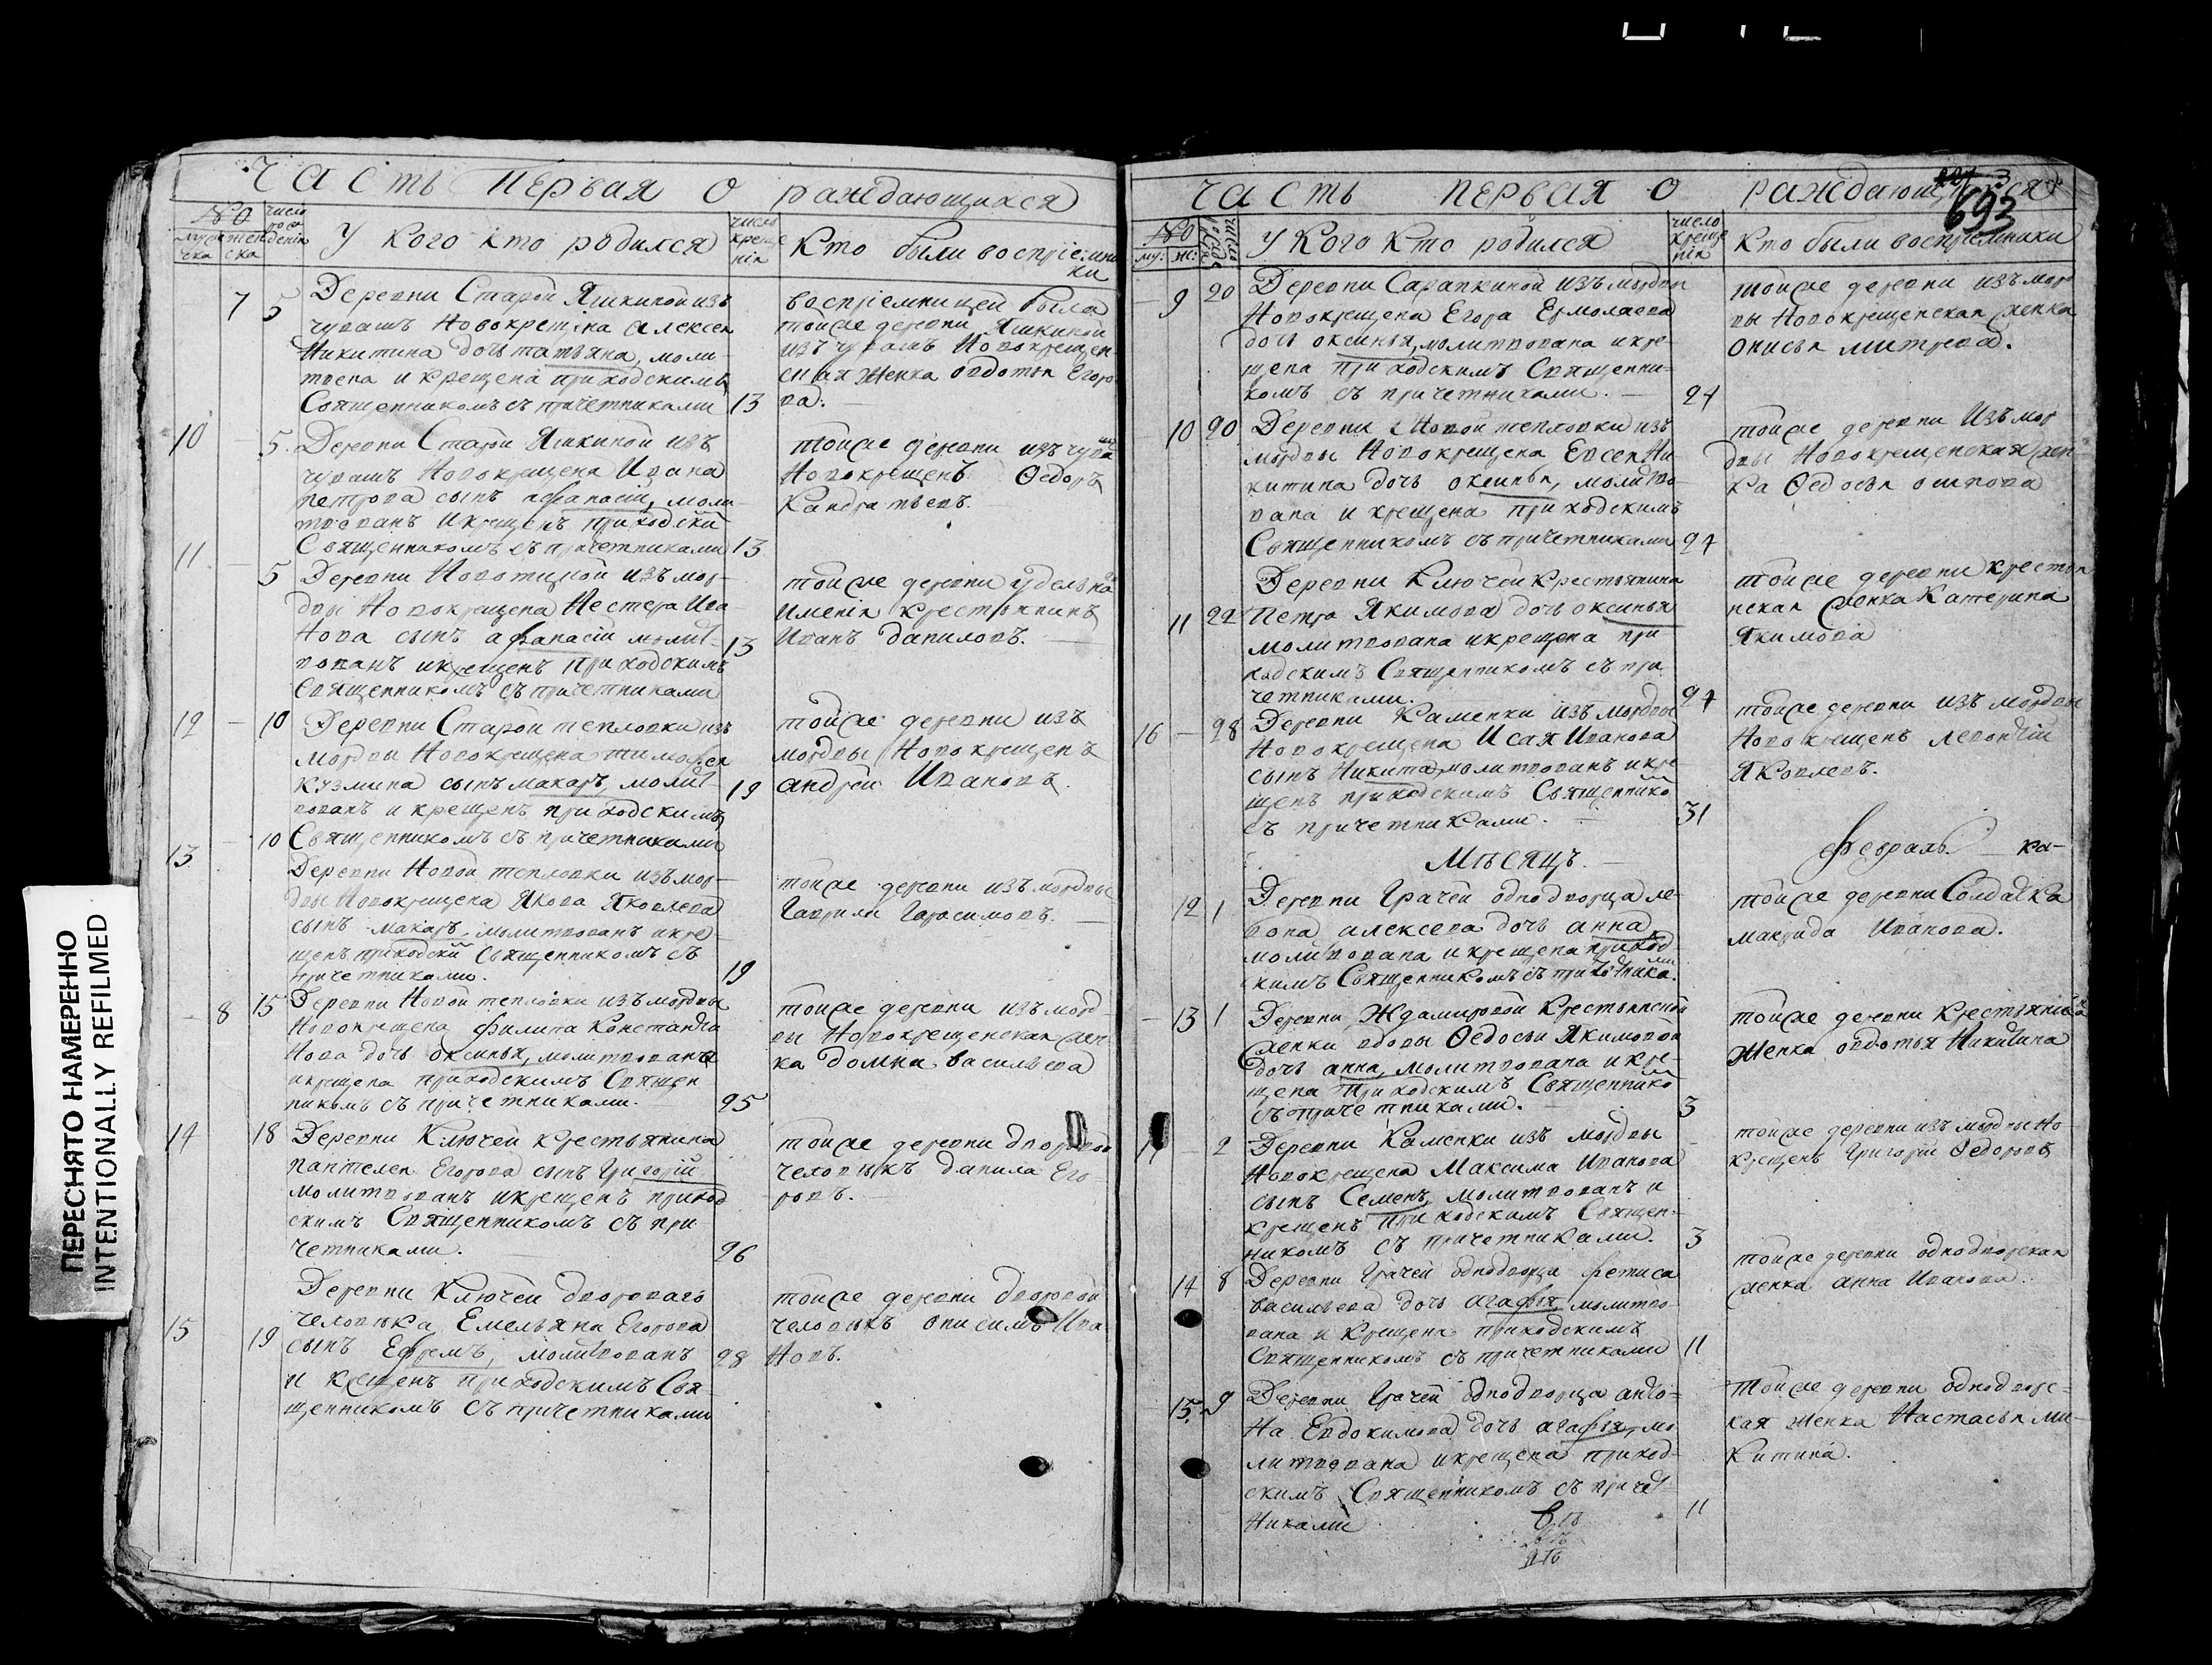 ПЕРЕСНЯТО НАМЕРЕННО
INTENTIONALLY REFILMED
Часть первая о раждающихся
№ число
У кого кто родился
число креще нія
Кто были воспріемни
ки
7 5
Деревни Старой Яшкиной изъ
чувашъ Новокрещена Алексея
Никитина дочь татьяна, моли-
твена и крещена приходскимъ
Священникомъ съ причетниками 13
воспріемницей была
тойже деревни Яшкиной
изъ чувашъ Новокрещен-
ская женка овдотья Егоро-
ва.
10 5
Деревни Старой Яшкиной изъ
чувашъ Новокрещена Ивана
петрова сынъ афанасій, моли
твованъ и крещенъ приходски
Священникомъ съ причетниками 13
тойже деревни изъ чува
Новокрещенъ Федоръ
Кандратьевъ.
11 5
Деревни изъ мор-
двы Новокрещена Нестера Ива
нова сынъ афанасій молит-
вованъ и крещенъ приходскимъ
Священникомъ съ причетниками
13
тойже деревни удельна
именія крестьянинъ
Иванъ даниловъ.
12 10
Деревни Старой тепловки изъ
мордвы Новокрещена тимофея
Кузмина сынъ макаръ, молит-
вованъ и крещенъ приходскимъ
Священникомъ съ причетниками
19
тойже деревни изъ
мордвы Новокрещенъ
андрей Ивановъ.
13 10
Деревни Новой тепловки изъ мор-
двы Новокрещена Якова Яковлева
сынъ макаръ, молитвованъ и кре-
щенъ приходски Священникомъ съ
причетниками. 19
тойже деревни изъ мордвы
Гаврила Гарасимовъ.
8 15
Деревни Новой тепловки изъ мордвы
Новокрещена филипа Константи
нова дочь оксинья, молитвована
и крещена приходскимъ Священ
никомъ съ причетниками. 25
тойже деревни изъ морд-
вы Новокрещенская жен
ка домна васильева
14 18
Деревни Ключей крестьянина
пантелея Егорова сынъ Григорій
молитвованъ и крещенъ приход
скимъ Священникомъ съ при
четниками. 26
тойже деревни дворовой
человѣкъ данила Его-
ровъ.
15 19
Деревни Ключей двороваго
человѣка Емельяна Егорова
сынъ Ефремъ, молитвованъ
и крещенъ приходскимъ Свя-
щенникомъ съ причетниками
28
тойже деревни дворовой
человѣкъ онисимъ Ива
новъ.
Часть первая о раждающихся
693
№ му: ж:
У кого кто родился
число креще нія
Кто были воспріемники
9 20
Деревни Сарапкиной изъ мордвы
Новокрещена Егора Ермолаева
дочь оксинья, молитвована и кре-
щена приходскимъ Священни-
комъ съ причетниками. 24
тойже деревни изъ мор
вы Новокрещенская женка
митрева.
10 20
Деревни Новой тепловки изъ
мордвы Новокрещена Евсея Ни-
китина дочь оксинья, молитво-
вана и крещена приходскимъ
Священникомъ съ причетниками 24
тойже деревни изъ мор
двы Новокрещенская жен
ка Федосья осипова
11 22
Деревни Ключей крестьянина
Петра Якимова дочь оксинья
молитвована и крещена при
ходскимъ Священникомъ съ при
четниками. 24
тойже деревни крестья
нская женка Катерина
Якимова
16 28
Деревни Каменки изъ мордвы
Новокрещена Исая Иванова
сынъ Никита, молитвованъ и кре
щенъ приходскимъ Священнико
съ причетниками. 31
тойже деревни изъ мордвы
Новокрещенъ леонтій
Яковлевъ.
Мѣсяцъ.
февраль.
12 1
Деревни Грачей однодворца ле-
вона алексева дочь анна,
молитвована и крещена приход
скимъ Священникомъ съ
тойже деревни Солдатка
макрида Иванова.
13 1
Деревни Ждамировой Крестьянской
женки вдовы Федосьи Якимовой
дочь анна, молитвована и кре-
щена приходскимъ Священнико
съ причетниками. 3
тойже деревни
женка овдотья Никитина
17 2
Деревни Каменки изъ мордвы
Новокрещена Максима Иванова
сынъ Семенъ, молитвованъ и
крещенъ приходскимъ Священ-
никомъ съ причетниками. 3
тойже деревни изъ мордвы Но-
крещенъ Григорій Федоровъ
14 8
Деревни Грачей однодворца фетиса
васильева дочь агафья, молитво-
вана и крещена приходскимъ
Священникомъ съ причетниками 11
тойже деревни однодворская
женка анна Иванова.
15. 9
Деревни Грачей однодворца анто-
на Евдокимова дочь агафья, мо
литвована и крещена приход-
скимъ Священникомъ съ причет
никами 11
тойже деревни однодворс-
кая женка Настасья ми-
китина.